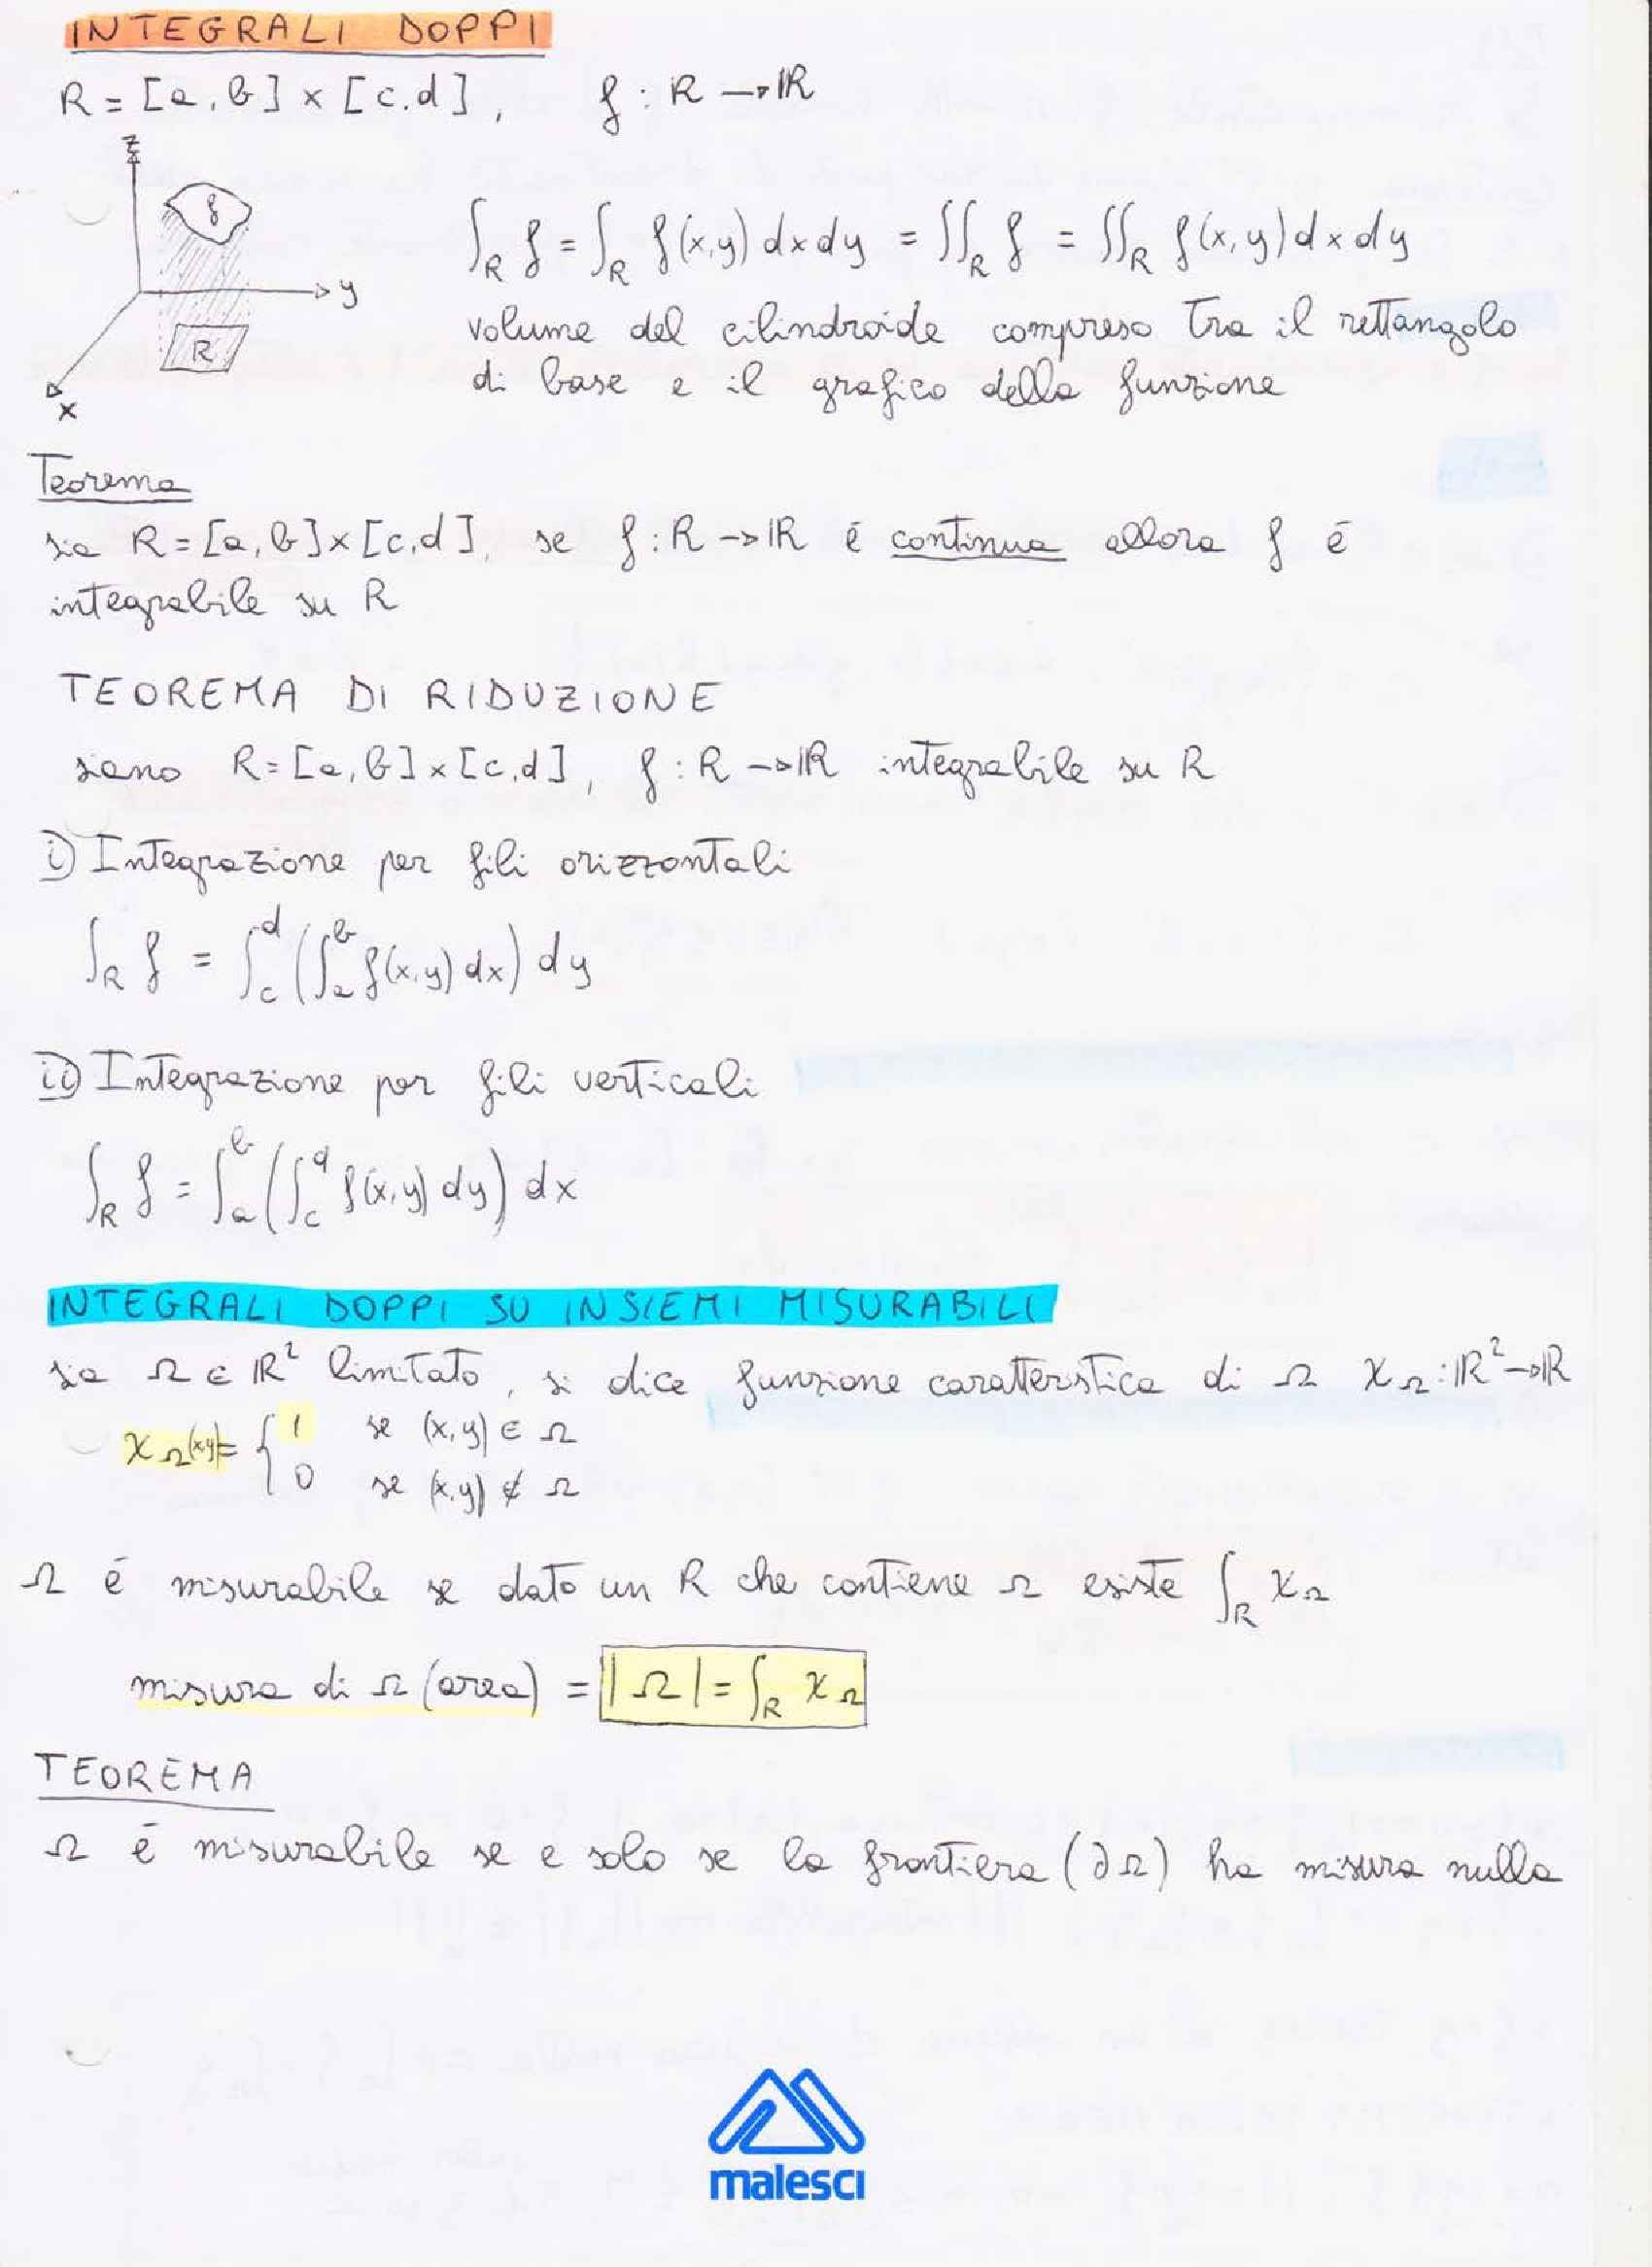 INTEGRALI DOPPI
R = [a, b] × [c, d], f : R → ℝ
z
f
y
R
x
∫_R f = ∫_R f(x,y) dx dy = ∬_R f = ∬_R f(x,y) dx dy
volume del cilindroide compreso tra il rettangolo
di base e il grafico della funzione
Teorema
sia R = [a, b] × [c, d], se f : R → ℝ é continua allora f é
integrabile su R
TEOREMA DI RIDUZIONE
siano R = [a, b] × [c, d], f : R → ℝ integrabile su R
i) Integrazione per fili orizzontali
∫_R f = ∫_c^d (∫_a^b f(x,y) dx) dy
ii) Integrazione per fili verticali
∫_R f = ∫_a^b (∫_c^d f(x,y) dy) dx
INTEGRALI DOPPI SU INSIEMI MISURABILI
sia Ω ∈ ℝ² limitato, si dice funzione caratteristica di Ω χ_Ω : ℝ² → ℝ
χ_Ω(x,y) = { 1 se (x,y) ∈ Ω
0 se (x,y) ∉ Ω
Ω é misurabile se dato un R che contiene Ω esiste ∫_R χ_Ω
misura di Ω (area) = |Ω| = ∫_R χ_Ω
TEOREMA
Ω é misurabile se e solo se la frontiera (∂Ω) ha misura nulla
malesci